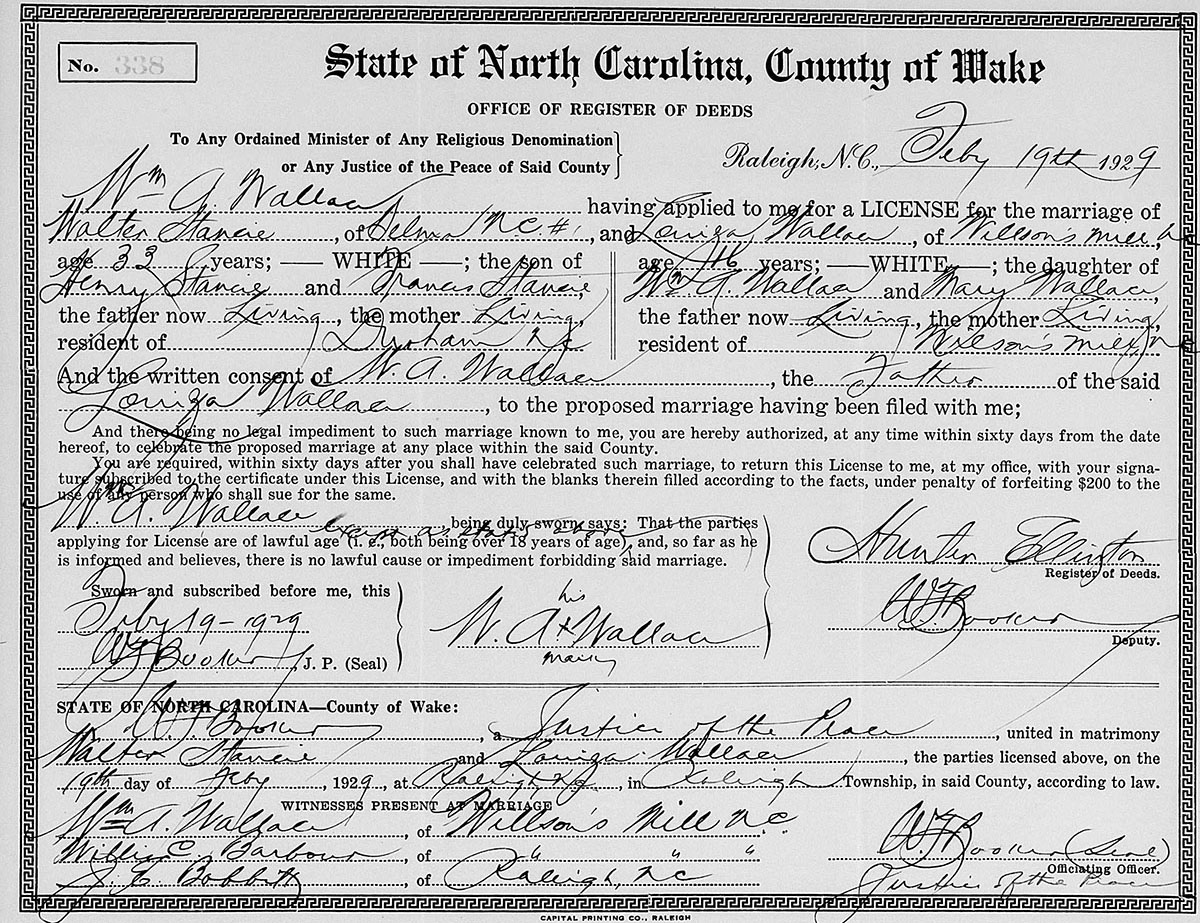 No. 338
State of North Carolina, County of Wake
OFFICE OF REGISTER OF DEEDS
To Any Ordained Minister of Any Religious Denomination
or Any Justice of the Peace of Said County
Raleigh, N.C., Feby 19th 1929
Wm A. Wallace having applied to me for a LICENSE for the marriage of
Walter Stancie, of Selma N.C. #1, and Louiza Wallace, of Willson's Mill, NC
age 33 years; — WHITE —; the son of
Henry Stancie and Francis Stancie,
the father now Living, the mother Living,
resident of Durham NC
age 16 years; — WHITE —; the daughter of
Wm. A. Wallace and Mary Wallace,
the father now Living, the mother Living,
resident of Willson's Mill, NC
And the written consent of W. A. Wallace, the Father of the said
Louiza Wallace, to the proposed marriage having been filed with me;
And there being no legal impediment to such marriage known to me, you are hereby authorized, at any time within sixty days from the date
hereof, to celebrate the proposed marriage at any place within the said County.
You are required, within sixty days after you shall have celebrated such marriage, to return this License to me, at my office, with your signa-
ture subscribed to the certificate under this License, and with the blanks therein filled according to the facts, under penalty of forfeiting $200 to the
use of any person who shall sue for the same.
Wm. A. Wallace being duly sworn says: That the parties
as stated above
applying for License are of lawful age (i. e., both being over 18 years of age), and, so far as he
is informed and believes, there is no lawful cause or impediment forbidding said marriage.
Hunter Ellington
Register of Deeds.
Sworn and subscribed before me, this
Feby 19-1929
W.F. Booker, J. P. (Seal)
his
W. A x Wallace
mark
W.F. Booker
Deputy.
STATE OF NORTH CAROLINA—County of Wake:
W.F. Booker, a Justice of the Peace, united in matrimony
Walter Stancie and Louiza Wallace, the parties licensed above, on the
19th day of Feby, 1929, at Raleigh, NC, in Raleigh Township, in said County, according to law.
WITNESSES PRESENT AT MARRIAGE
Wm A. Wallace, of Willson's Mill NC
Willie C. Barbour, of " " "
J. E. Bobbitt, of Raleigh, NC
W.F. Booker (Seal)
Officiating Officer.
Justice of the Peace
CAPITAL PRINTING CO., RALEIGH